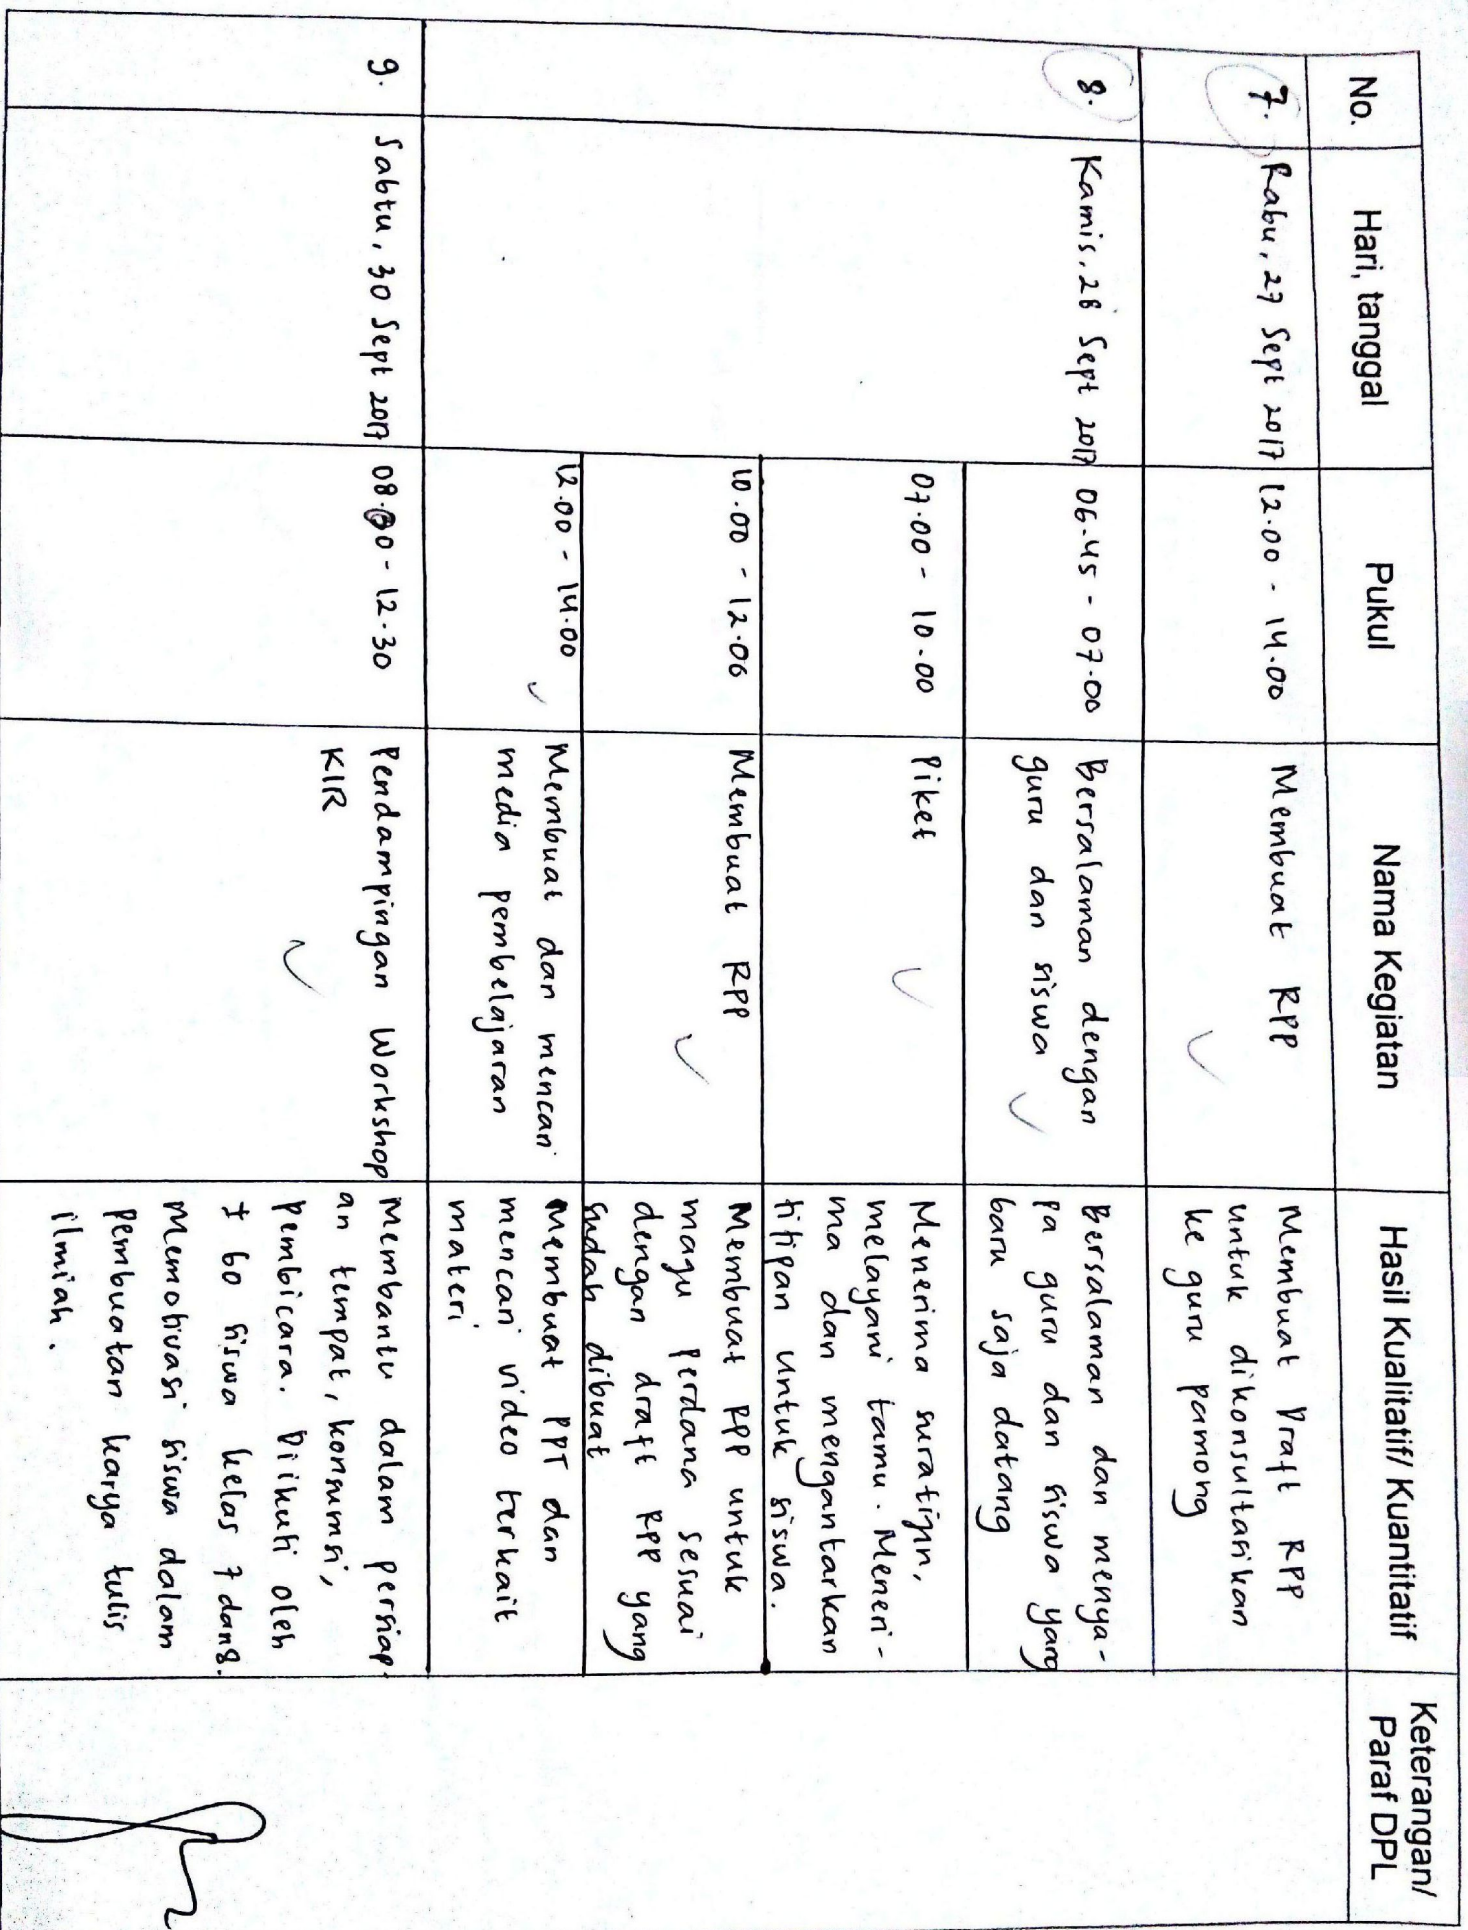 No.
Hari, tanggal
Pukul
Nama Kegiatan
Hasil Kualitatif/ Kuantitatif
Keterangan/
Paraf DPL
7.
Rabu, 27 Sept 2017
12.00 - 14.00
Membuat RPP
Membuat Draft RPP
untuk dikonsultasikan
ke guru pamong
8.
Kamis, 28 Sept 2017
06.45 - 07.00
Bersalaman dengan
guru dan siswa
Bersalaman dan menya-
pa guru dan siswa yang
baru saja datang
07.00 - 10.00
Piket
Menerima surat ijin,
melayani tamu. Meneri-
ma dan mengantarkan
titipan untuk siswa.
10.00 - 12.00
Membuat RPP
Membuat RPP untuk
maju perdana sesuai
dengan draft RPP yang
sudah dibuat
12.00 - 14.00
Membuat dan mencari
media pembelajaran
Membuat PPT dan
mencari video terkait
materi
9.
Sabtu, 30 Sept 2017
08.00 - 12.30
Pendampingan Workshop
KIR
Membantu dalam persiap
an tempat, konsumsi,
pembicara. Diikuti oleh
± 60 siswa kelas 7 dan 8.
Memotivasi siswa dalam
pembuatan karya tulis
ilmiah.